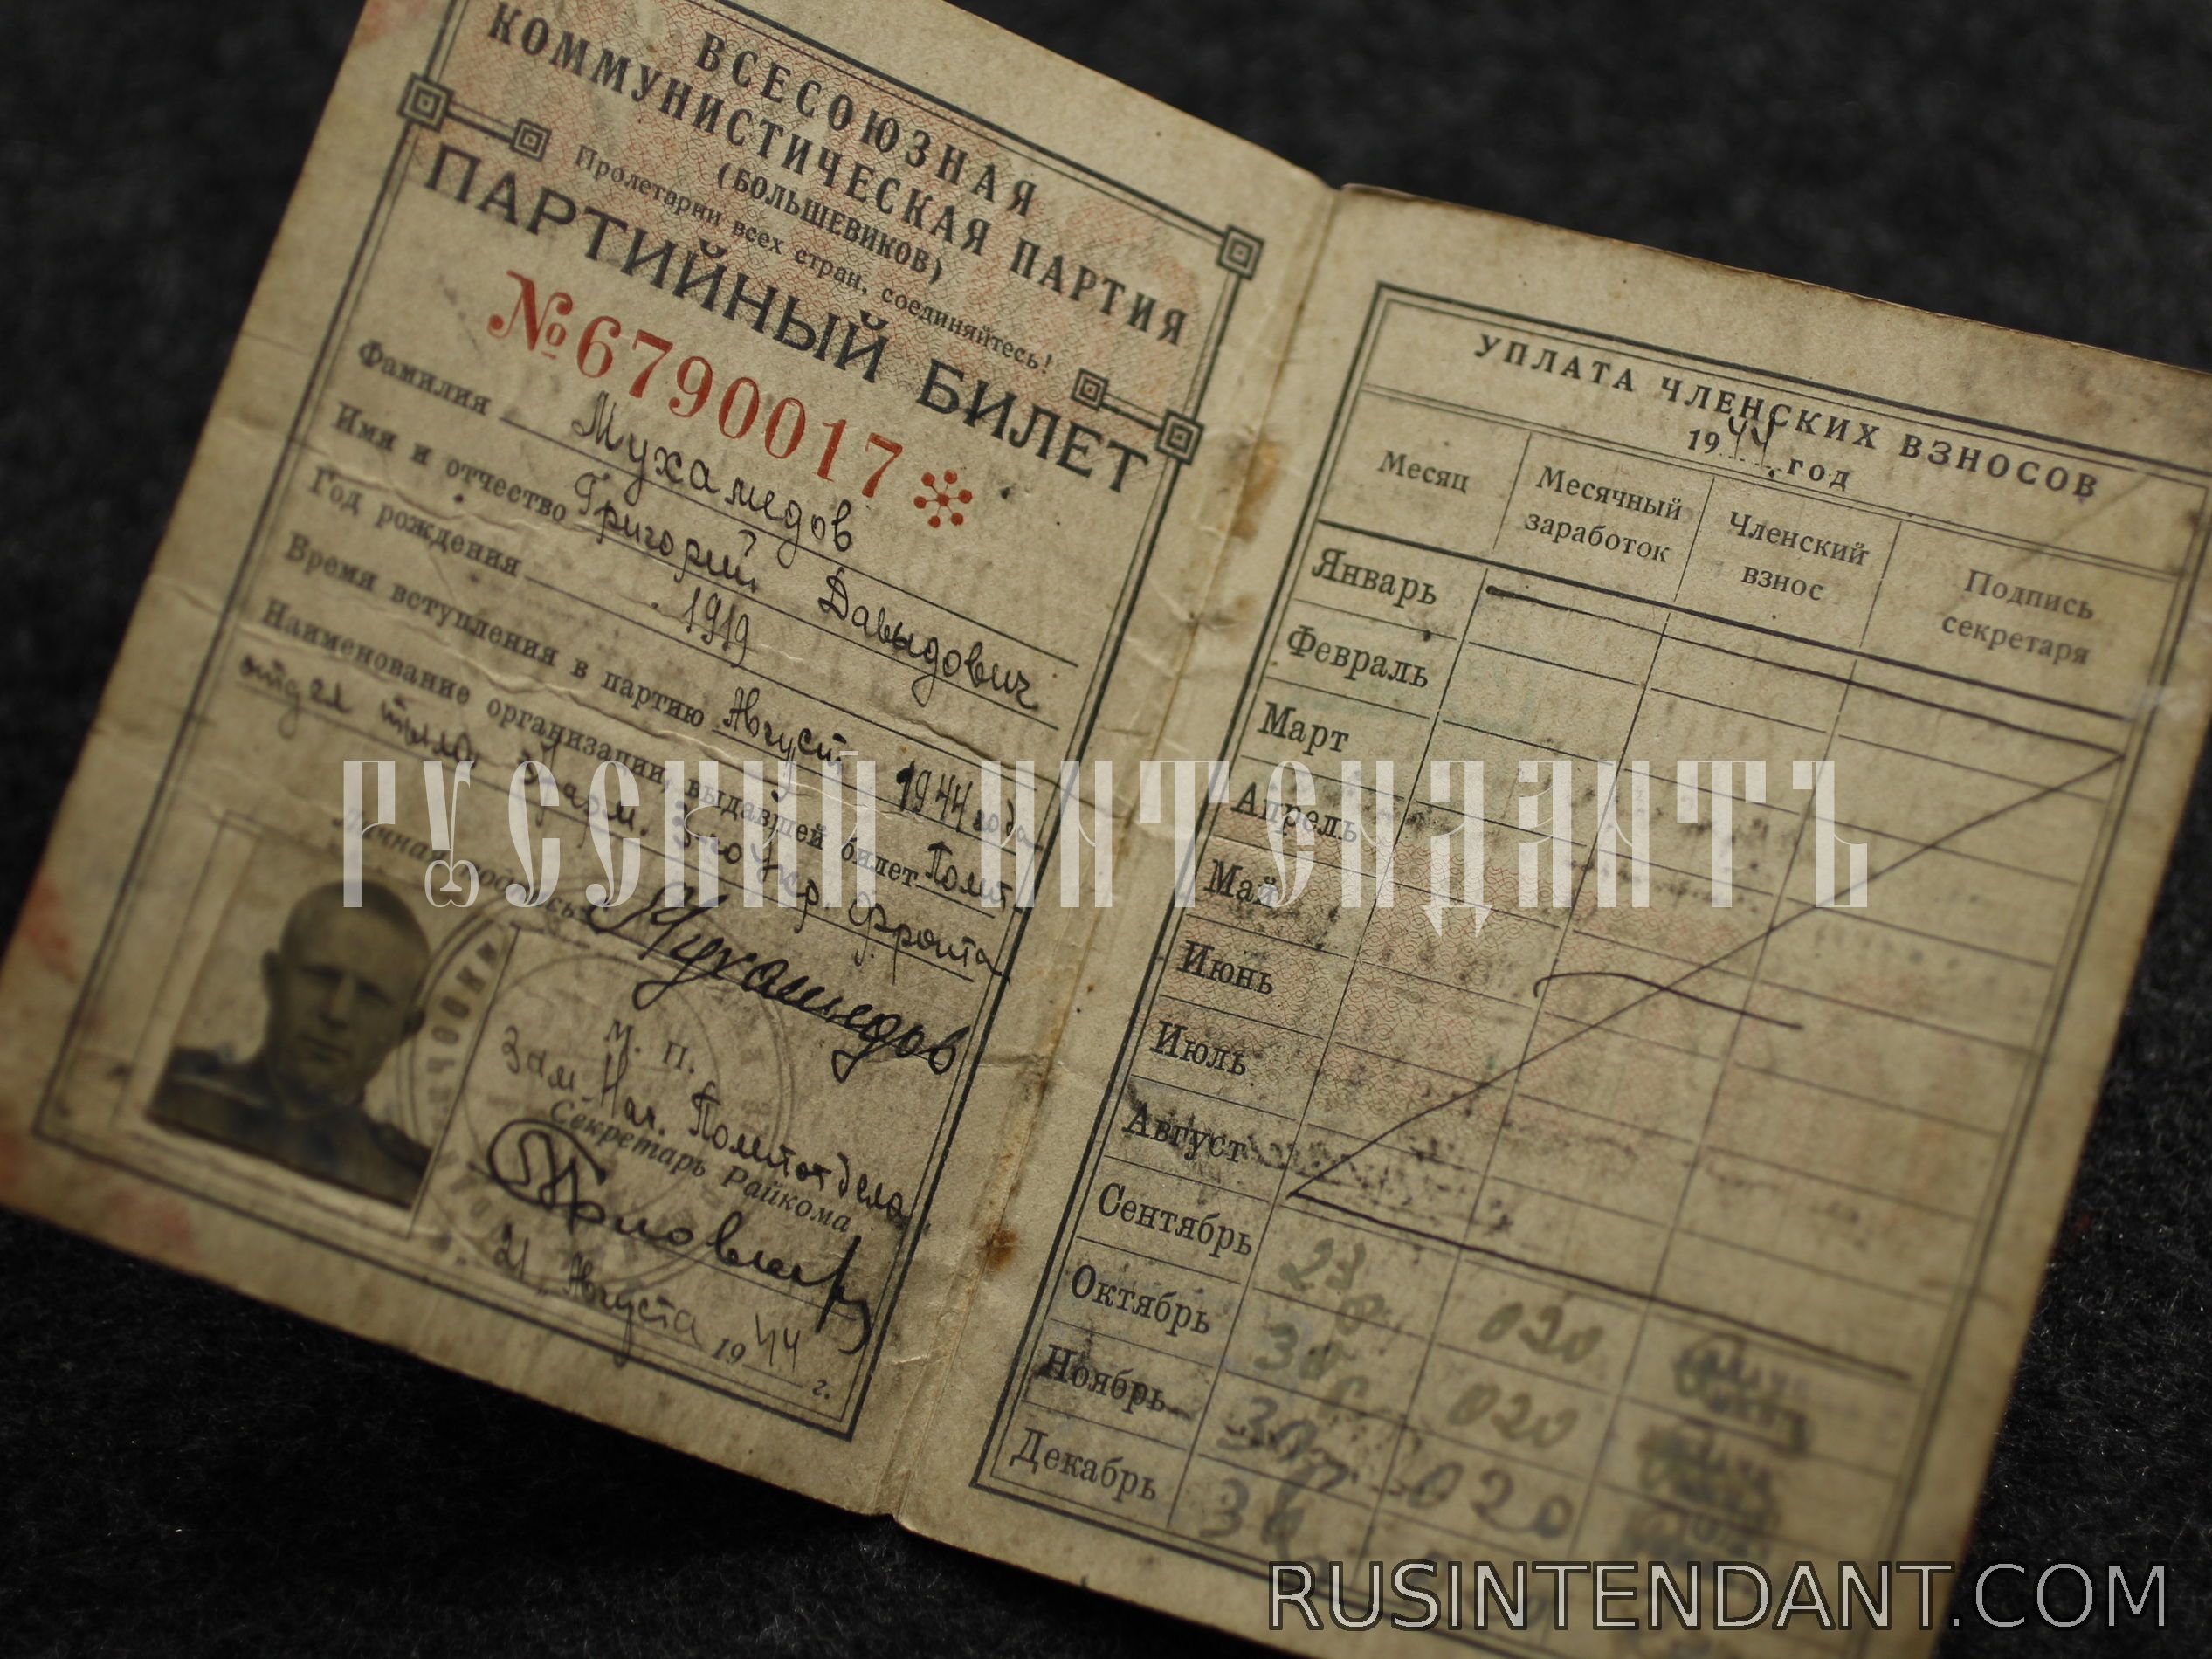 ВСЕСОЮЗНАЯ
КОММУНИСТИЧЕСКАЯ ПАРТИЯ
(БОЛЬШЕВИКОВ)
Пролетарии всех стран, соединяйтесь!
ПАРТИЙНЫЙ БИЛЕТ
№6790017
Фамилия Мухамедов
Имя и отчество Григорий Давыдович
Год рождения 1919
Время вступления в партию Август 1944 года
Наименование организации, выдавшей билет Полит.
отдел тыла Укр. фронта
Личная подпись Мухамедов
М. П.
Зам. Нач. Политотдела
Секретарь Райкома
21 Августа 1944 г.
УПЛАТА ЧЛЕНСКИХ ВЗНОСОВ
1944 год
Месяц Месячный заработок Членский взнос Подпись секретаря
Январь
Февраль
Март
Апрель
Май
Июнь
Июль
Август
Сентябрь 020
Октябрь 020
Ноябрь 020
Декабрь
РУССКИЙ ИНТЕНДАНТЪ
RUSINTENDANT.COM